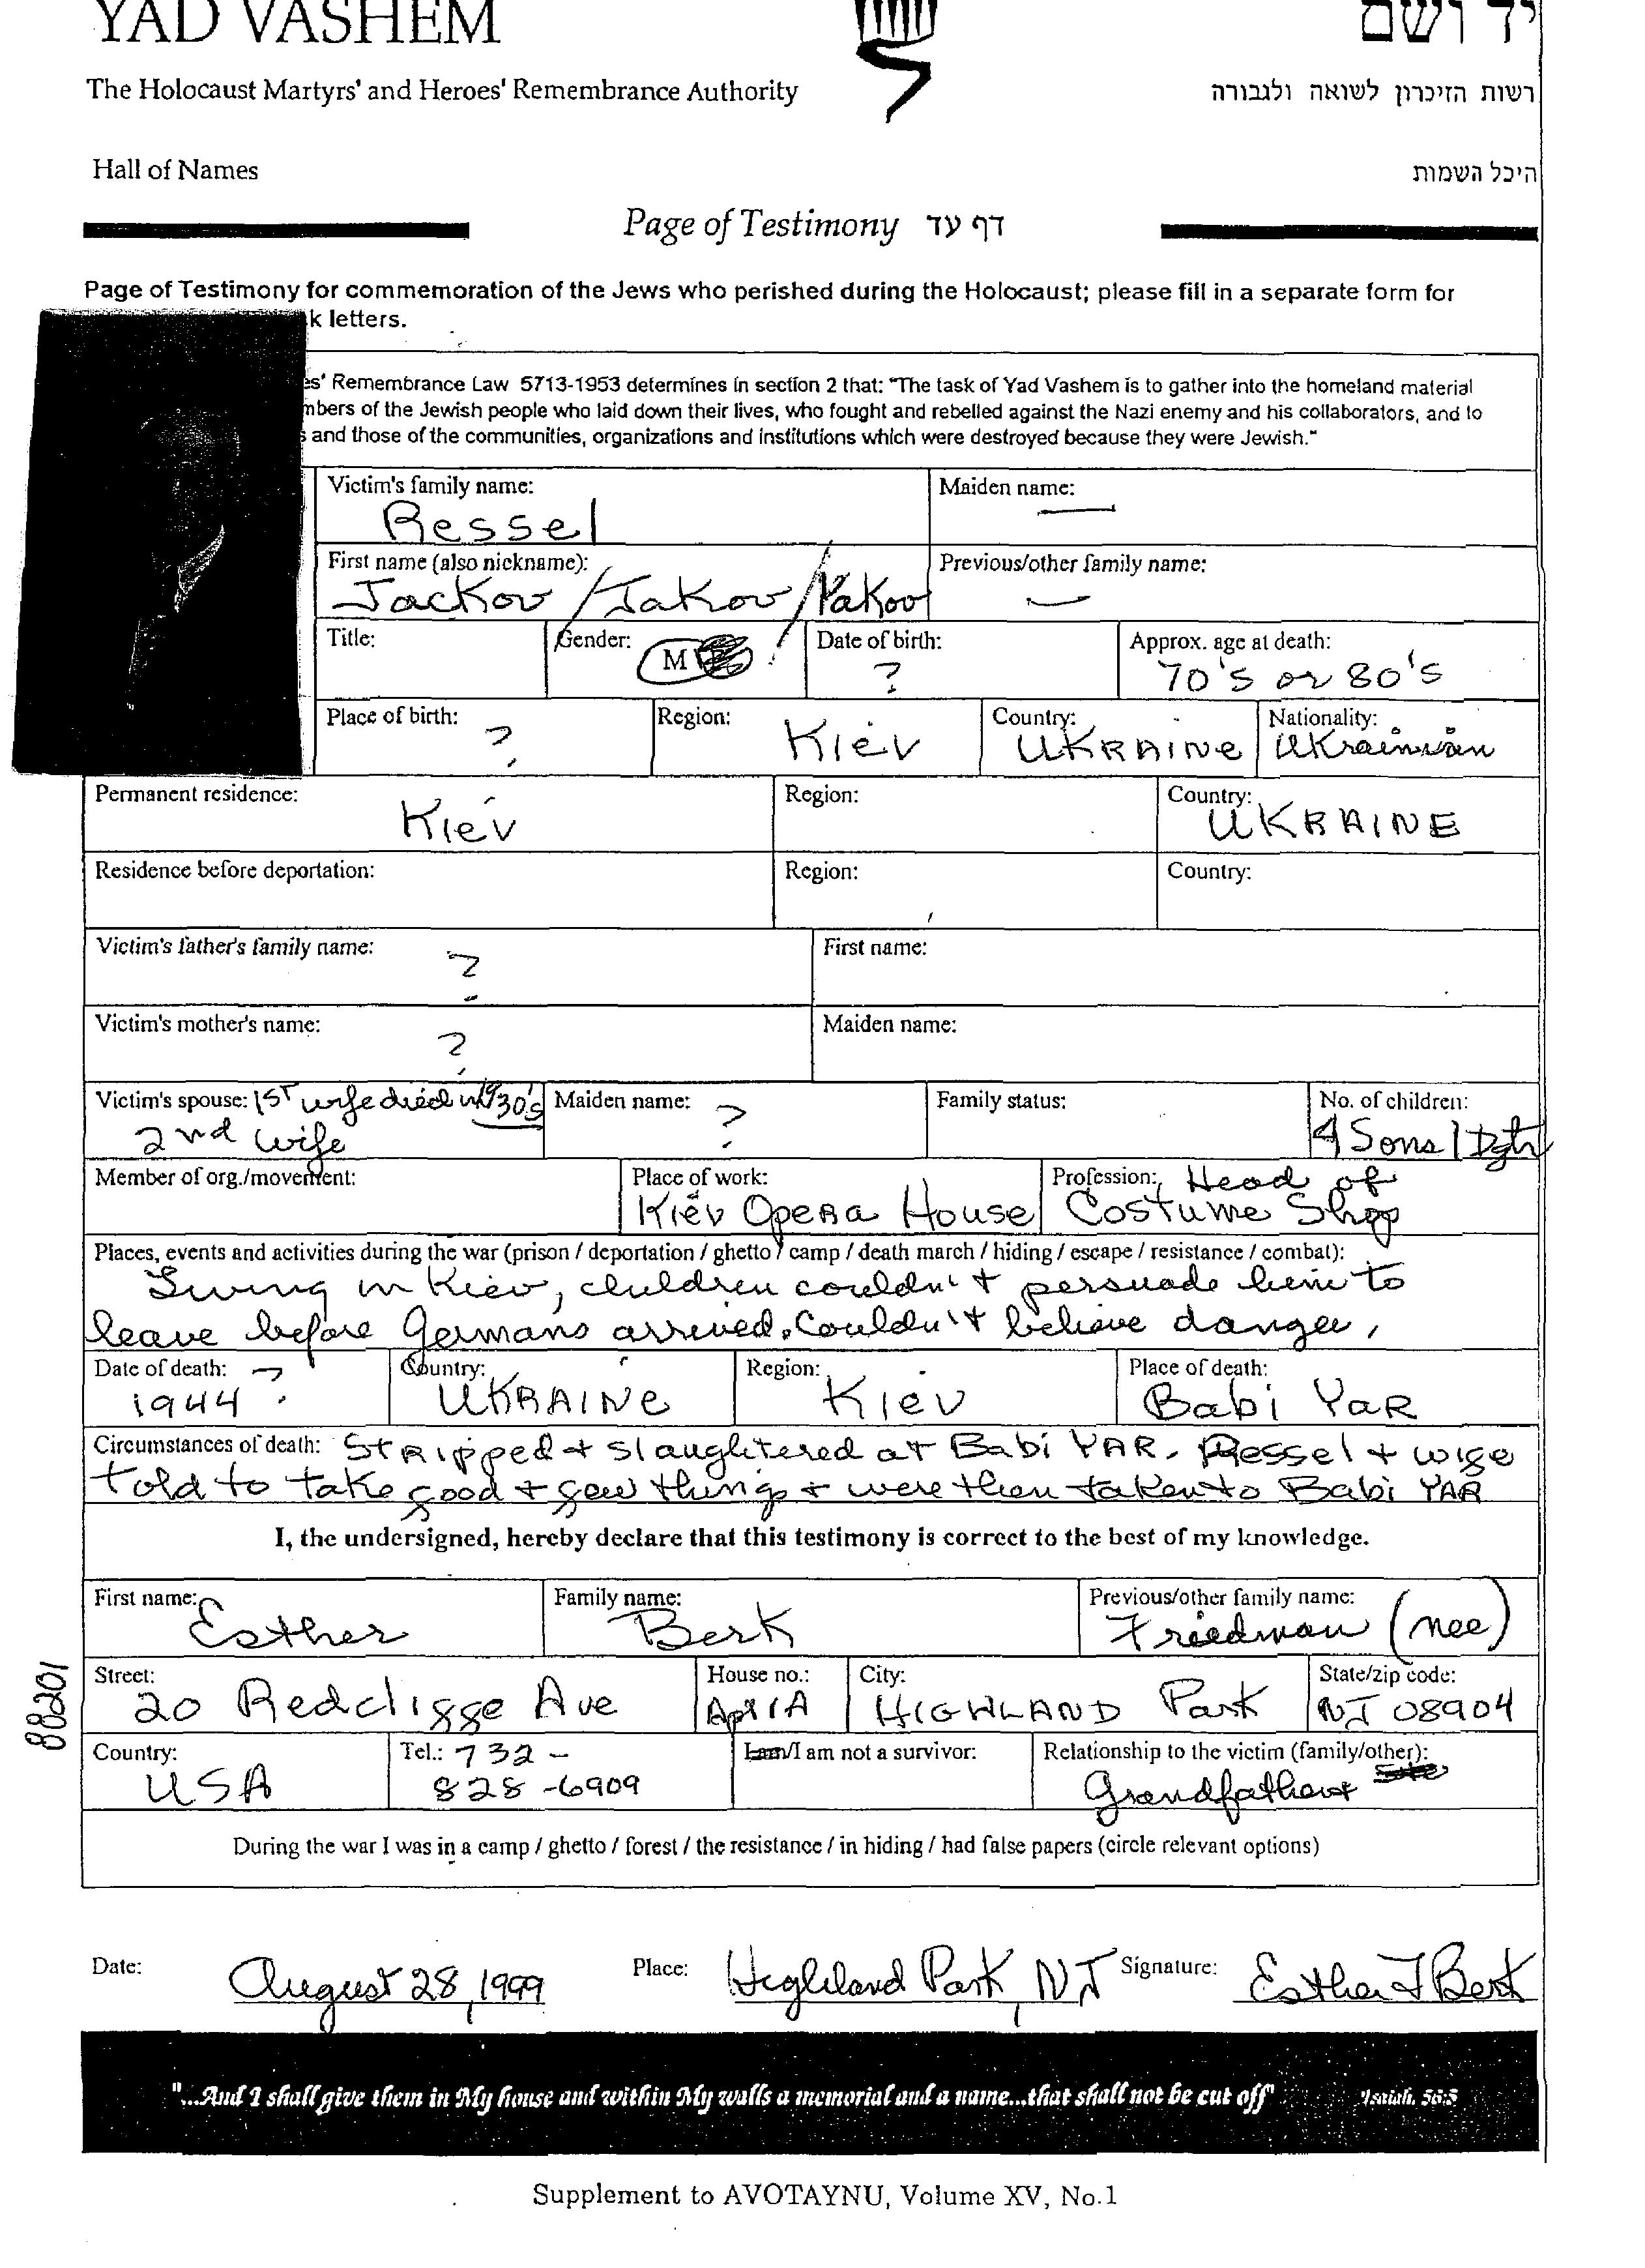 YAD VASHEM
יד ושם
The Holocaust Martyrs' and Heroes' Remembrance Authority
רשות הזיכרון לשואה ולגבורה
Hall of Names
היכל השמות
Page of Testimony דף עד
Page of Testimony for commemoration of the Jews who perished during the Holocaust; please fill in a separate form for
k letters.
es' Remembrance Law 5713-1953 determines in section 2 that: "The task of Yad Vashem is to gather into the homeland material
mbers of the Jewish people who laid down their lives, who fought and rebelled against the Nazi enemy and his collaborators, and to
s and those of the communities, organizations and institutions which were destroyed because they were Jewish."
Victim's family name: Ressel
Maiden name: —
First name (also nickname): Jackov / Jakov / Yakov
Previous/other family name: —
Title:
Gender: M
Date of birth: ?
Approx. age at death: 70's or 80's
Place of birth: ?
Region: Kiev
Country: UKRAINE
Nationality: Ukrainian
Permanent residence: Kiev
Region:
Country: UKRAINE
Residence before deportation:
Region:
Country:
Victim's father's family name: ?
First name:
Victim's mother's name: ?
Maiden name:
Victim's spouse: 1st wife died in 1930's
2nd wife
Maiden name: ?
Family status:
No. of children: 4 Sons 1 Dgtr
Member of org./movement:
Place of work: Kiev Opera House
Profession: Head of
Costume Shop
Places, events and activities during the war (prison / deportation / ghetto / camp / death march / hiding / escape / resistance / combat):
Living in Kiev, children couldn't persuade him to
leave before Germans arrived. Couldn't believe danger,
Date of death: 1944 ?
Country: UKRAINE
Region: Kiev
Place of death: Babi Yar
Circumstances of death: Stripped + slaughtered at Babi YAR. Ressel + wife
told to take food + few things + were then taken to Babi YAR
I, the undersigned, hereby declare that this testimony is correct to the best of my knowledge.
First name: Esther
Family name: Berk
Previous/other family name: Friedman (nee)
Street: 20 Redcliffe Ave
House no.: Apt 1A
City: HIGHLAND Park
State/zip code: NJ 08904
Country: USA
Tel.: 732-
828-6909
I am/I am not a survivor:
Relationship to the victim (family/other): Grandfather
During the war I was in a camp / ghetto / forest / the resistance / in hiding / had false papers (circle relevant options)
Date: August 28, 1999
Place: Highland Park, NJ
Signature: Esther F Berk
88201
"...And I shall give them in My house and within My walls a memorial and a name...that shall not be cut off" Isaiah. 56:5
Supplement to AVOTAYNU, Volume XV, No.1